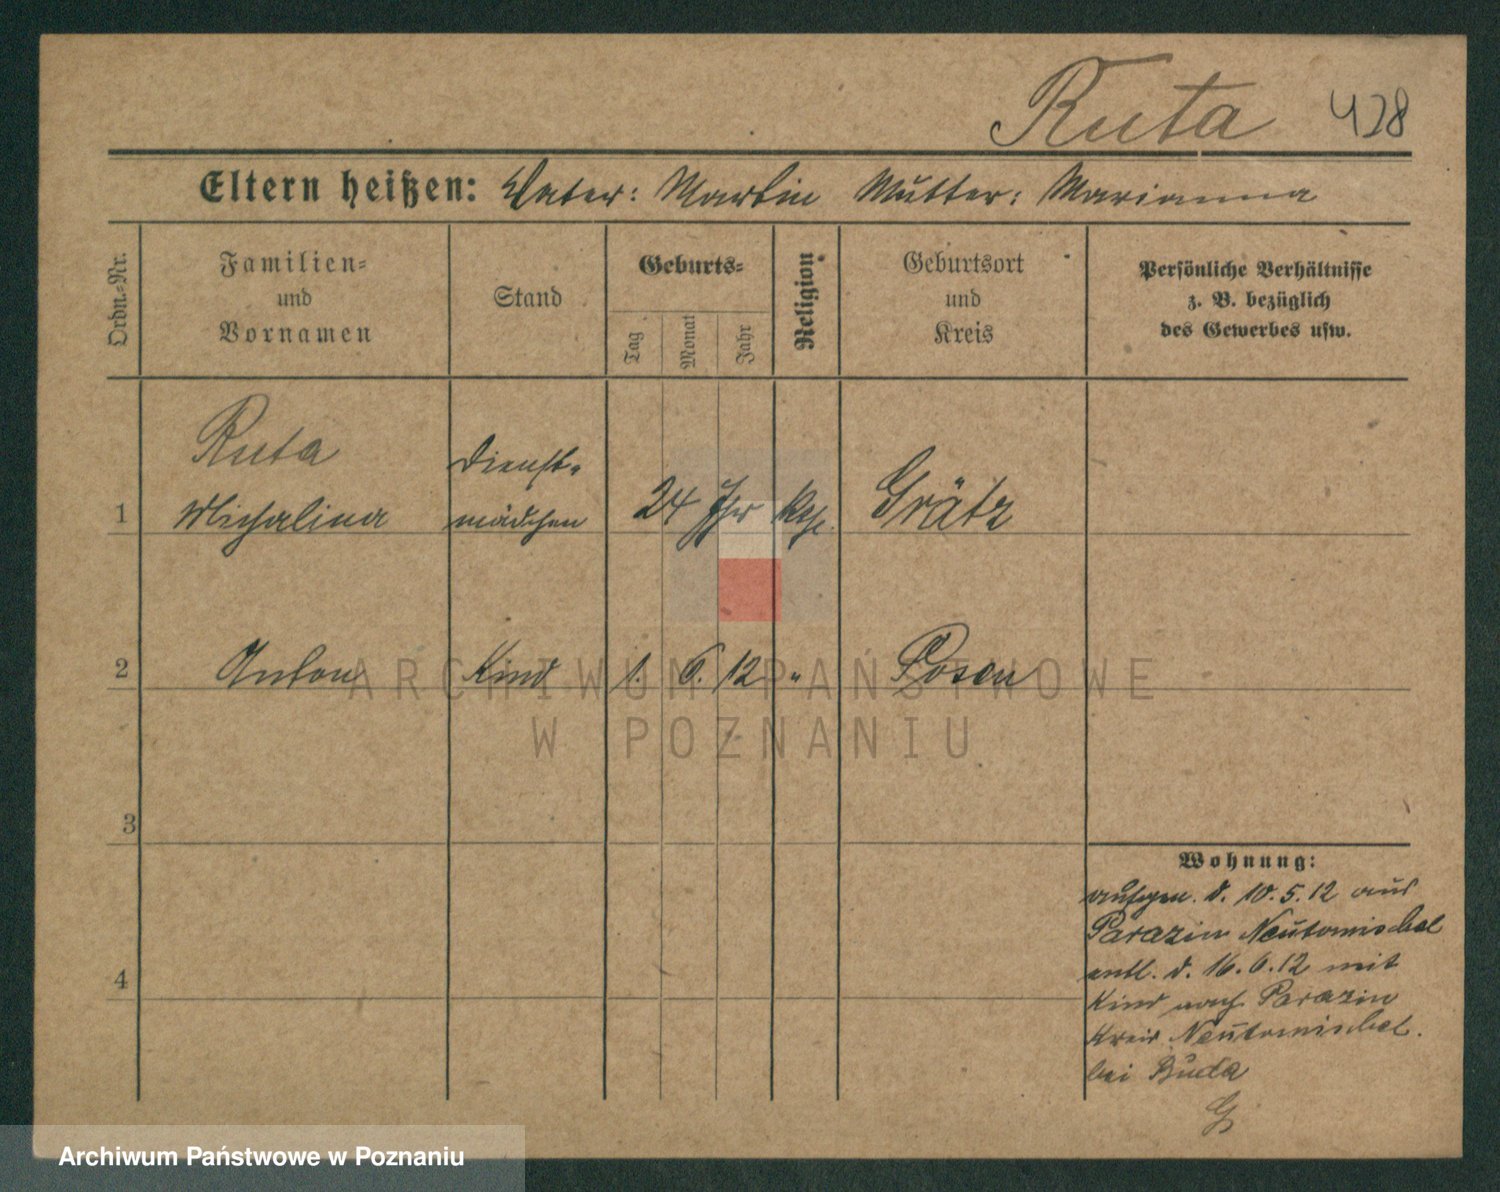 Ruta 428
Eltern heißen: Vater: Martin Mutter: Marianna
Ordn.-Nr.
Familien-
und
Vornamen
Stand
Geburts-
Tag
Monat
Jahr
Religion
Geburtsort
und
Kreis
Persönliche Verhältnisse
z. B. bezüglich
des Gewerbes usw.
Ruta Dienst-
1 Michalina mädchen 24 Jhr kth. Grätz
2 Anton Kind 1. 6. 12 " Posen
3
4
Wohnung:
aufgen. d. 10.5.12 aus
Parazin Neutomischel
entl. d. 16.6.12 mit
Kind nach Parazin
Kreis Neutomischel.
bei Buda
G
ARCHIWUM PAŃSTWOWE
W POZNANIU
Archiwum Państwowe w Poznaniu